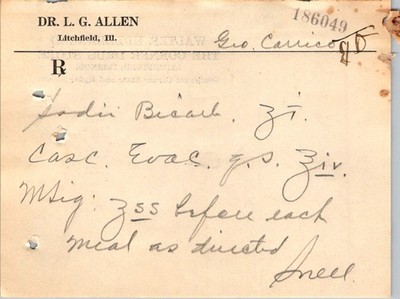 DR. L. G. ALLEN
Litchfield, Ill.
186049
Geo. Carrico
℞
Sodii Bicarb. ʒi.
Casc. Evac. q.s. ʒiv.
M Sig: ʒss before each
meal as directed